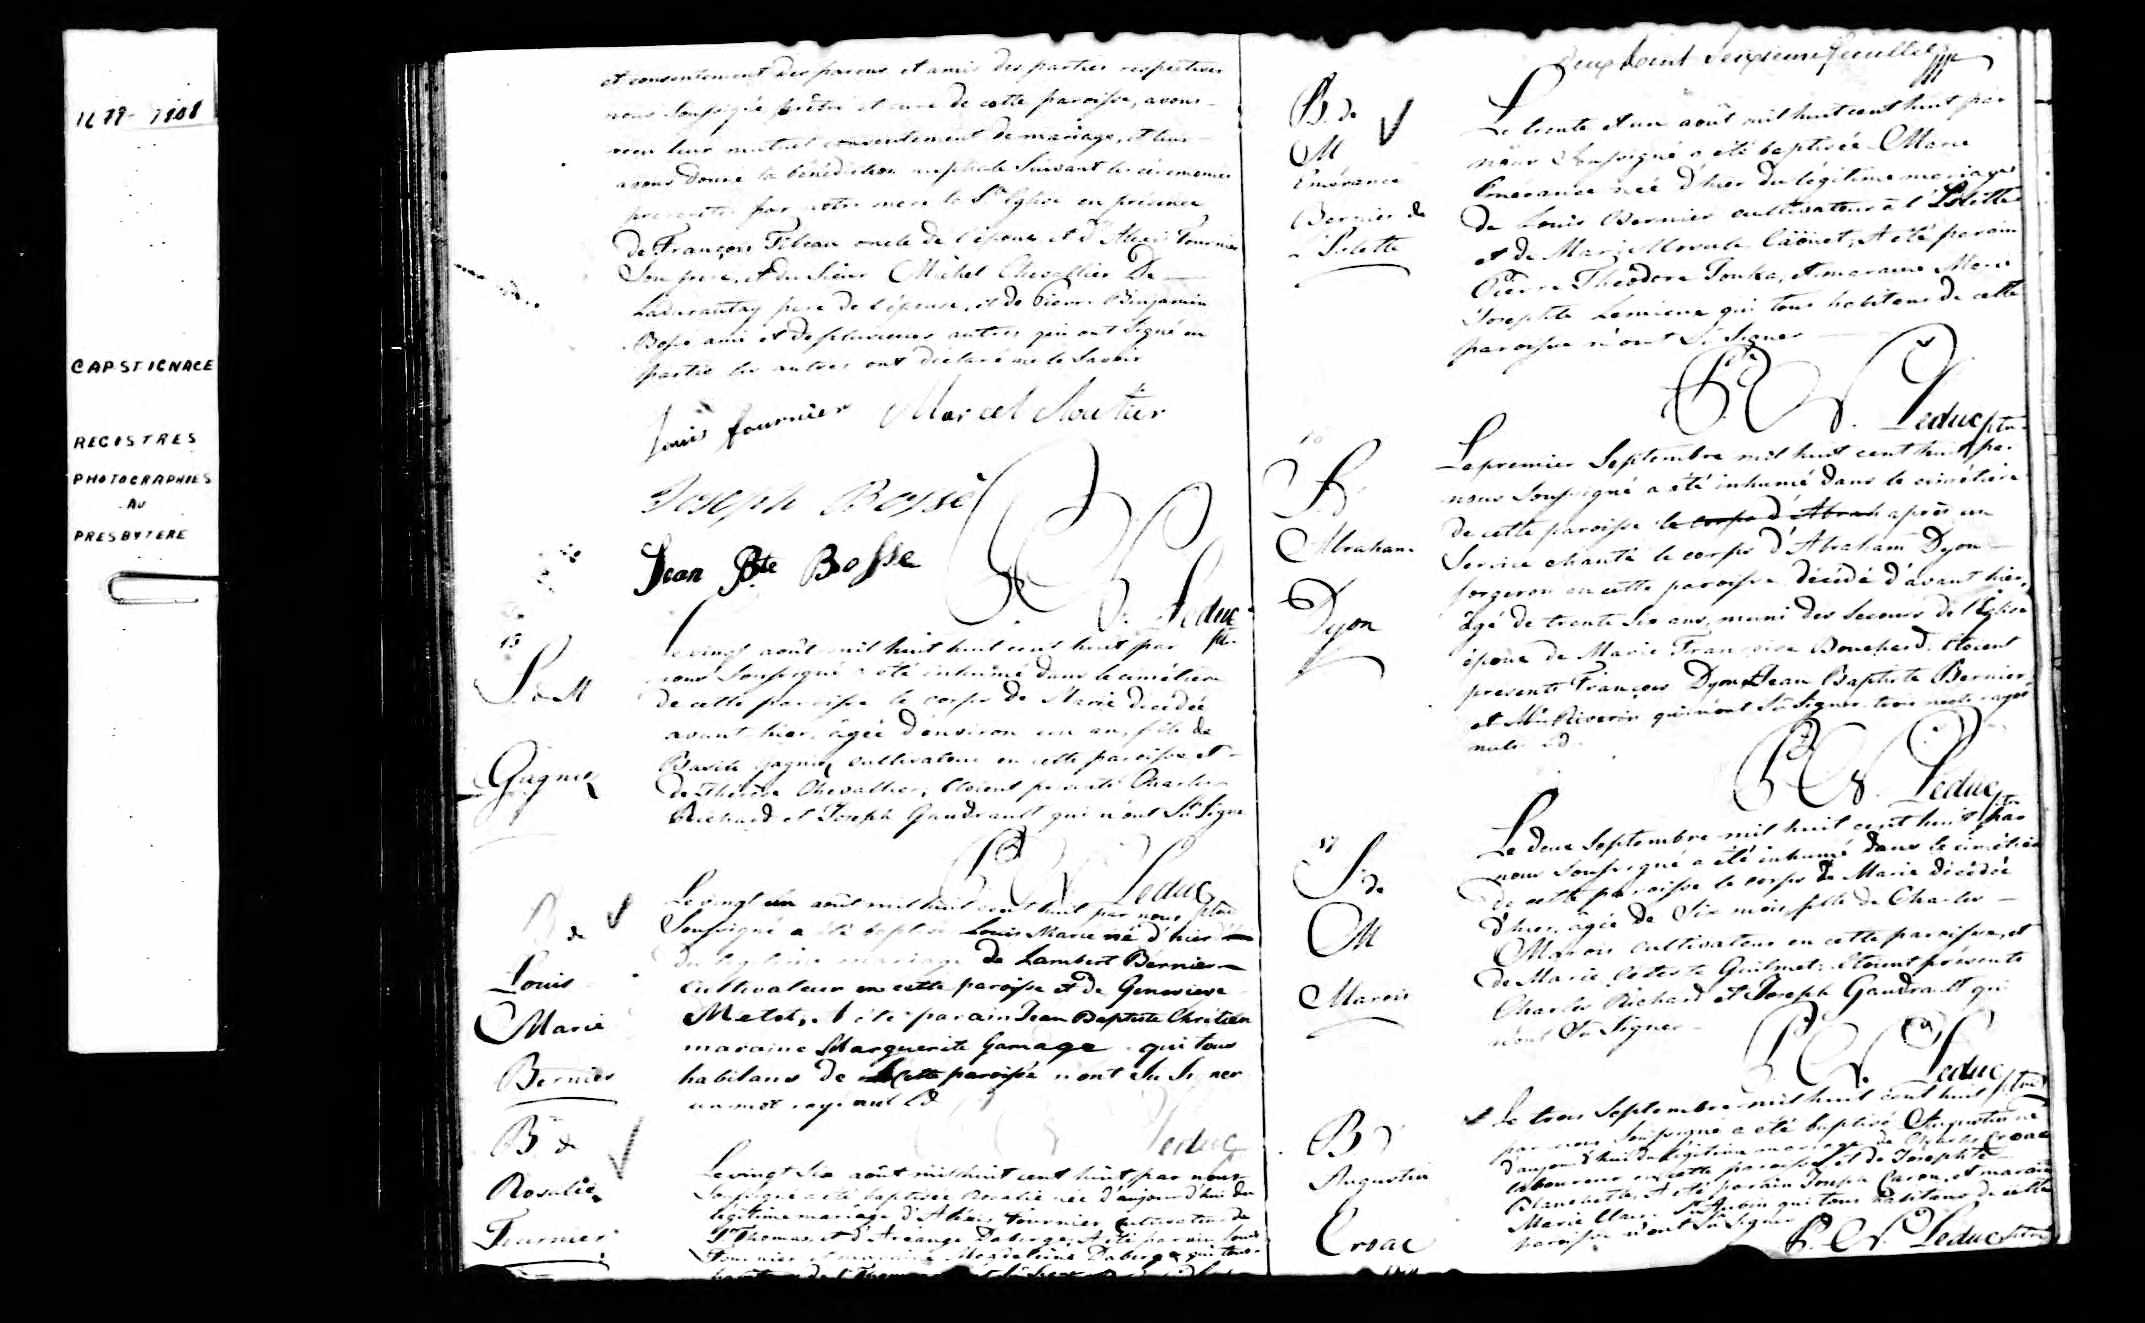 1679-1808
CAP ST IGNACE
REGISTRES
PHOTOGRAPHIES
AU
PRESBYTERE
et consentement des parens et amis des parties respectives
nous soussigné prêtre et curé de cette paroisse, avons
recu leur mutuel consentement de mariage, et leur
avons donné la bénédiction nuptiale suivant les cérémonies
prescrites par notre mere la Ste Eglise en présence
de François oncle de l'époux et d'Alexis Fournier
son pere, et du Sieur Michel Chevallier De
Ladurantay pere de l'épouse, et de Pierre Benjamin
Bossé ami et de plusieurs autres qui ont signé en
partie les autres ont déclaré ne le savoir
Louis fournier Marcel Cloutier
Joseph Bossé
Jean Bte Bosse
Leduc
ptre
15
S de M
Gagnez
Le vingt août mil huit huit cent huit par
nous soussigné a été inhumé dans le cimétiere
de cette paroisse le corps de Marie décédée
avant hier, âgée d'environ un an, fille de
Basile Gagnez cultivateur en cette paroisse et
de Thérèse Chevallier, Etoient présents Charles
Richard et Joseph Gaudrault qui n'ont su signer
Leduc
ptre
B de
Louis
Marie
Bernier
Le vingt un août mil huit cent huit par nous
soussigné a été baptisé Louis Marie né d'hier
du légitime mariage de Lambert Bernier
cultivateur en cette paroisse et de Genevieve
Metot, A été parain Jean Baptiste Chrétien
maraine Marguerite Gamage qui tous
habitans de cette paroisse n'ont su signer
un mot rayé nul
Leduc
B de
Rosalie
Fournier
Le vingt six août mil huit cent huit par nous
soussigné a été baptisée Rosalie née d'aujourd'hui du
légitime mariage d'Alexis Fournier cultivateur de
St Thomas et d'Arcange Daberge, A été parain Louis
Fournier et maraine Magdeleine Daberge qui tous
Deux Cent Seizieme feuillet
B. de
M
Emérance
Bernier de
L'Islette
Le trente et un août mil huit cent huit par
nous soussigné a été baptisée Marie
Emérance née d'hier du légitime mariage
de Louis Bernier cultivateur à l'Islette
et de Marie Ursule Caönet, A été parain
Pierre Théodore Fonka, et maraine Marie
Josephte Lemieux qui tous habitans de cette
paroisse n'ont su signer
Leduc ptre
S
Abraham
Dyon
Le premier Septembre mil huit cent huit par
nous soussigné a été inhumé dans le cimétiere
de cette paroisse le corps d'Abrah après un
service chanté le corps d'Abraham Dyon
forgeron en cette paroisse décédé d'avant hier,
âgé de trente six ans, muni des secours de l'Eglise
époux de Marie Françoise Bouchard. Etoient
présents François Dyon Jean Baptiste Bernier,
et Mtin Riverin qui n'ont su signer trois mots rayés
nuls
Leduc
ptre
17
S de
M
Marois
Le deux Septembre mil huit cent huit par
nous soussigné a été inhumé dans le cimétiere
de cette paroisse le corps de Marie décédée
d'hier, âgée de six mois, fille de Charles
Marois cultivateur en cette paroisse, et
de Marie Céleste Guilmet. Etoient présents
Charles Richard et Joseph Gaudrault qui
n'ont su signer
Leduc ptre
B
Augustin
Croac
Le trois Septembre mil huit cent huit
par nous soussigné a été baptisé Augustin né
d'aujourd'hui du légitime mariage de Charles Croac
laboureur en cette paroisse et de Josephte
Blanchette, A été parain Joseph Caron, et maraine
Marie Claire St Aubin qui tous habitans de cette
paroisse n'ont su signer
Leduc ptre